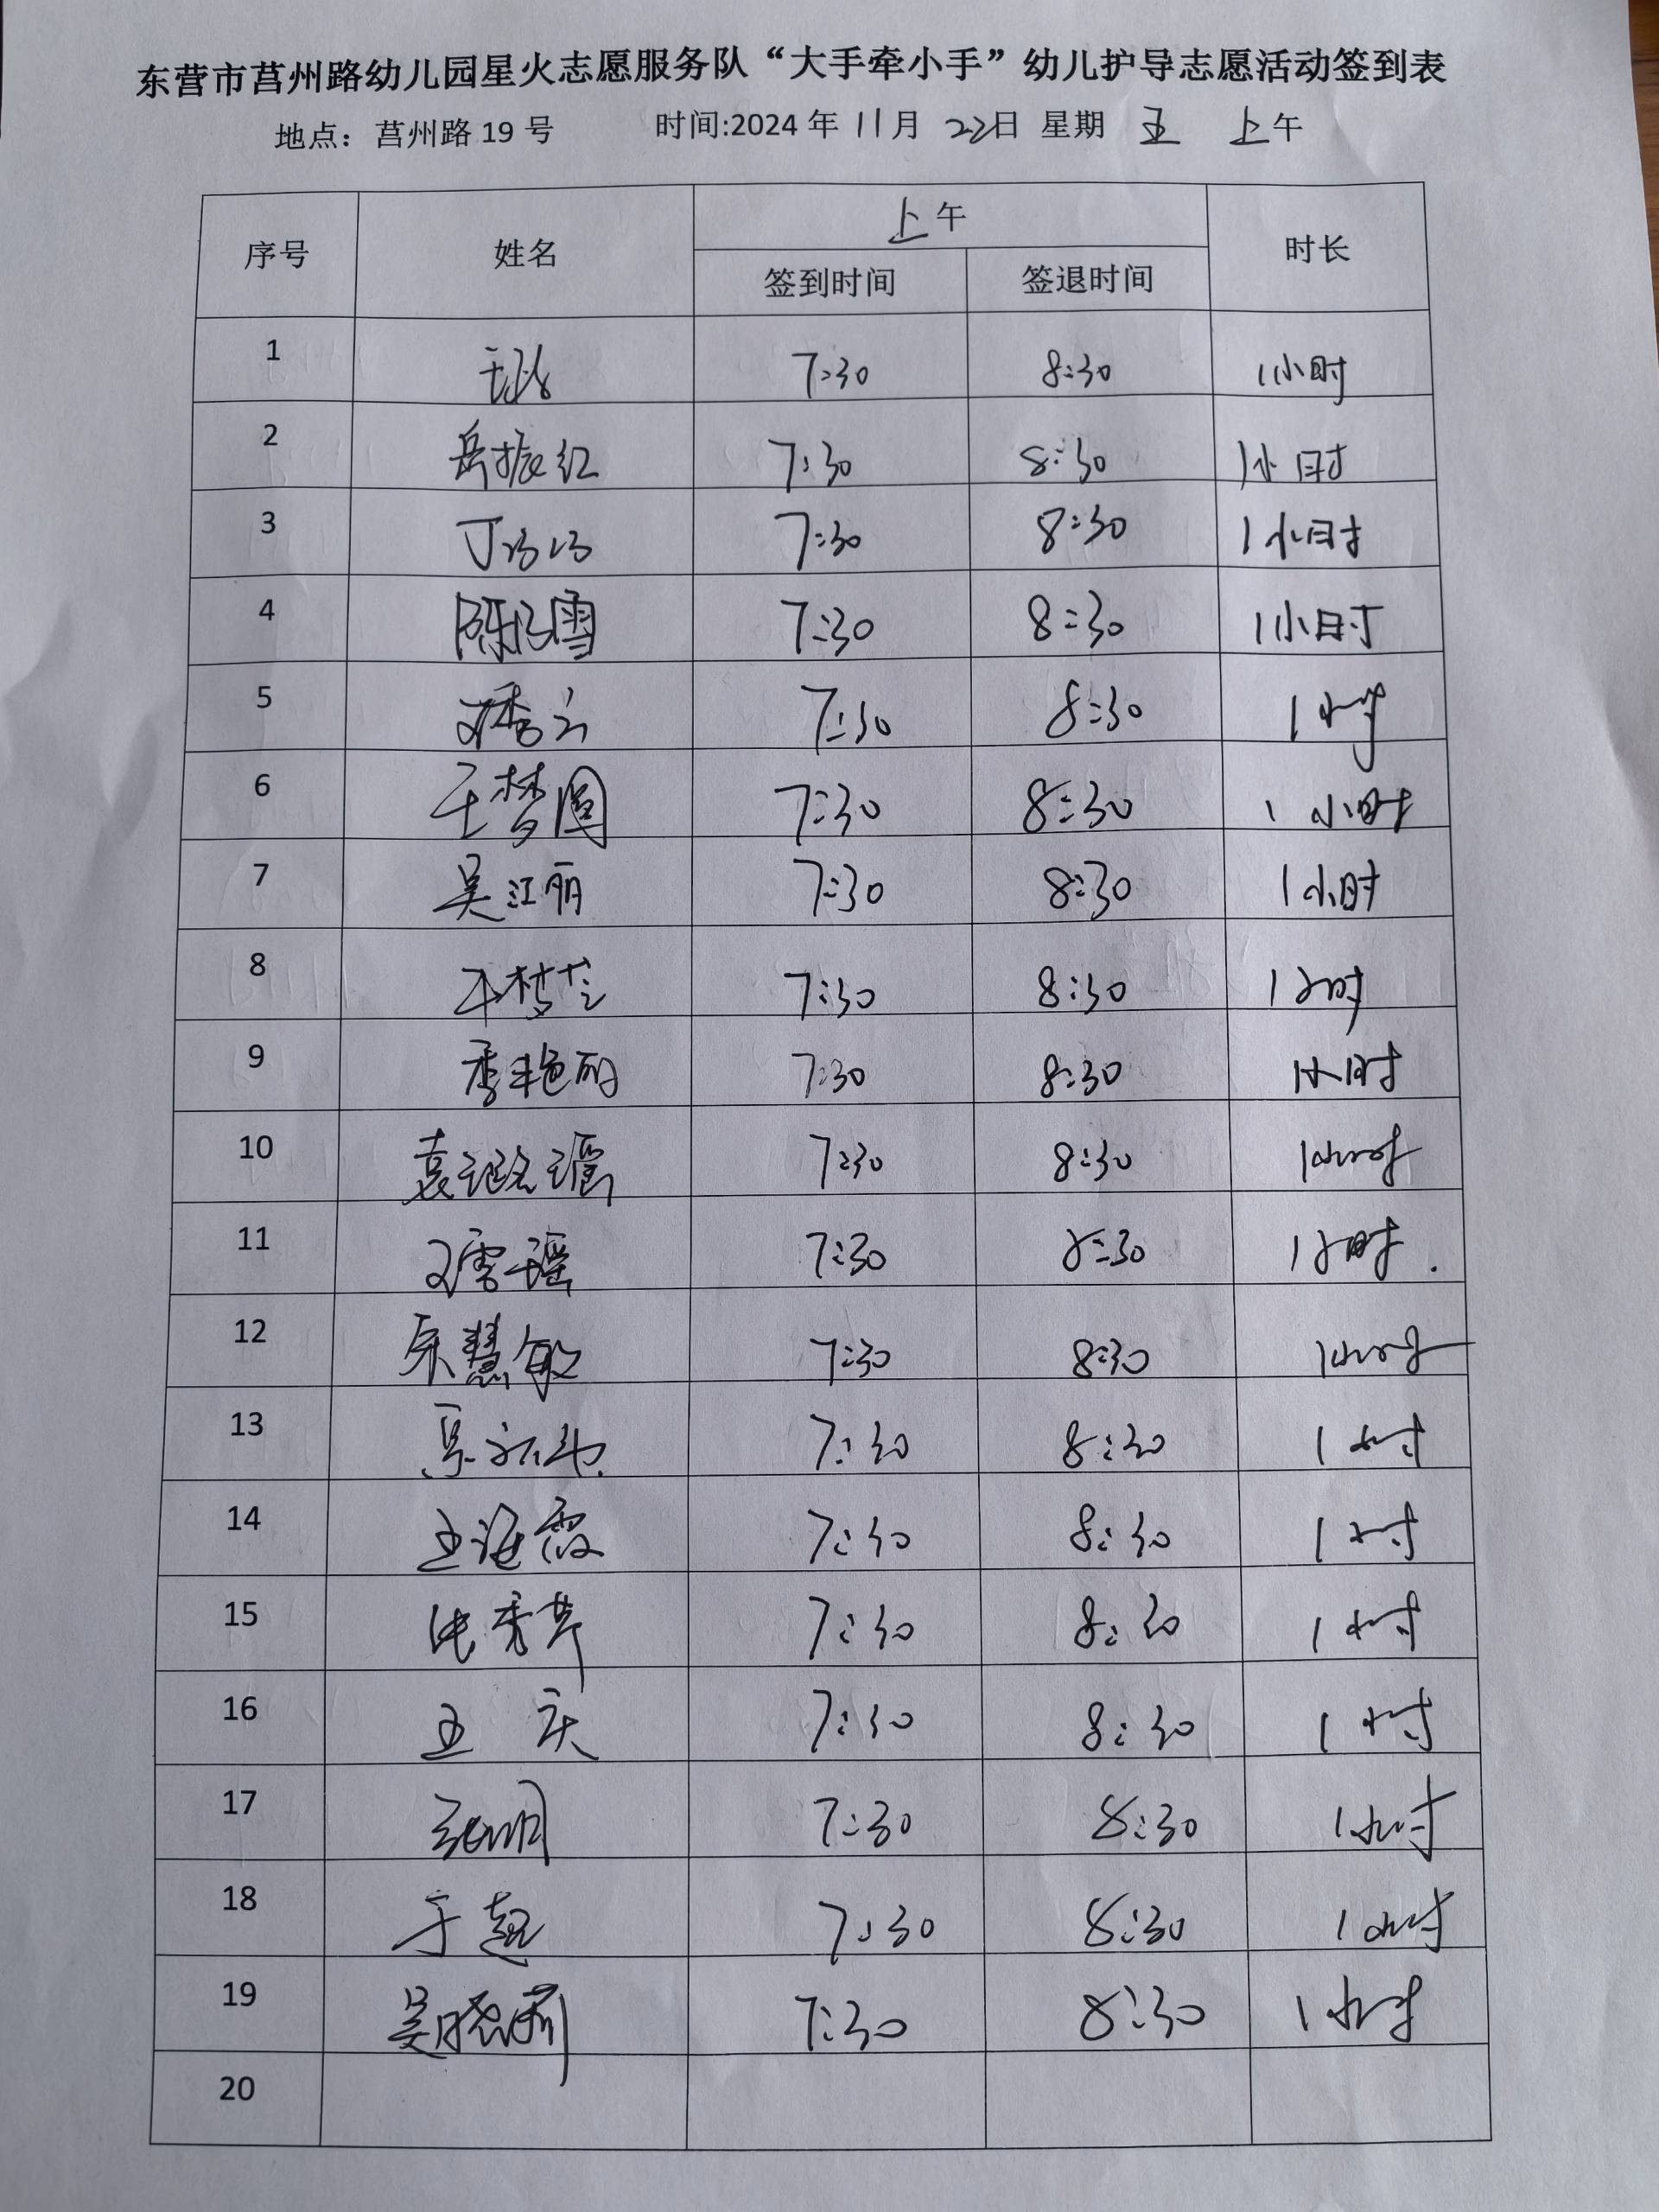 东营市莒州路幼儿园星火志愿服务队“大手牵小手”幼儿护导志愿活动签到表
地点：莒州路19号 时间:2024年11月22日 星期 五 上午
序号 姓名 上午 时长
签到时间 签退时间
1 7:30 8:30 1小时
2 岳振红 7:30 8:30 1小时
3 丁 7:30 8:30 1小时
4 陈 雪 7:30 8:30 1小时
5 7:30 8:30 1小时
6 王梦圆 7:30 8:30 1小时
7 吴江丽 7:30 8:30 1小时
8 7:30 8:30 1小时
9 季艳丽 7:30 8:30 1小时
10 袁 瑶 7:30 8:30 1小时
11 刘雪瑶 7:30 8:30 1小时
12 慧敏 7:30 8:30 1小时
13 7:30 8:30 1小时
14 王海霞 7:30 8:30 1小时
15 张秀芹 7:30 8:30 1小时
16 王庆 7:30 8:30 1小时
17 7:30 8:30 1小时
18 于超 7:30 8:30 1小时
19 吴晓莉 7:30 8:30 1小时
20